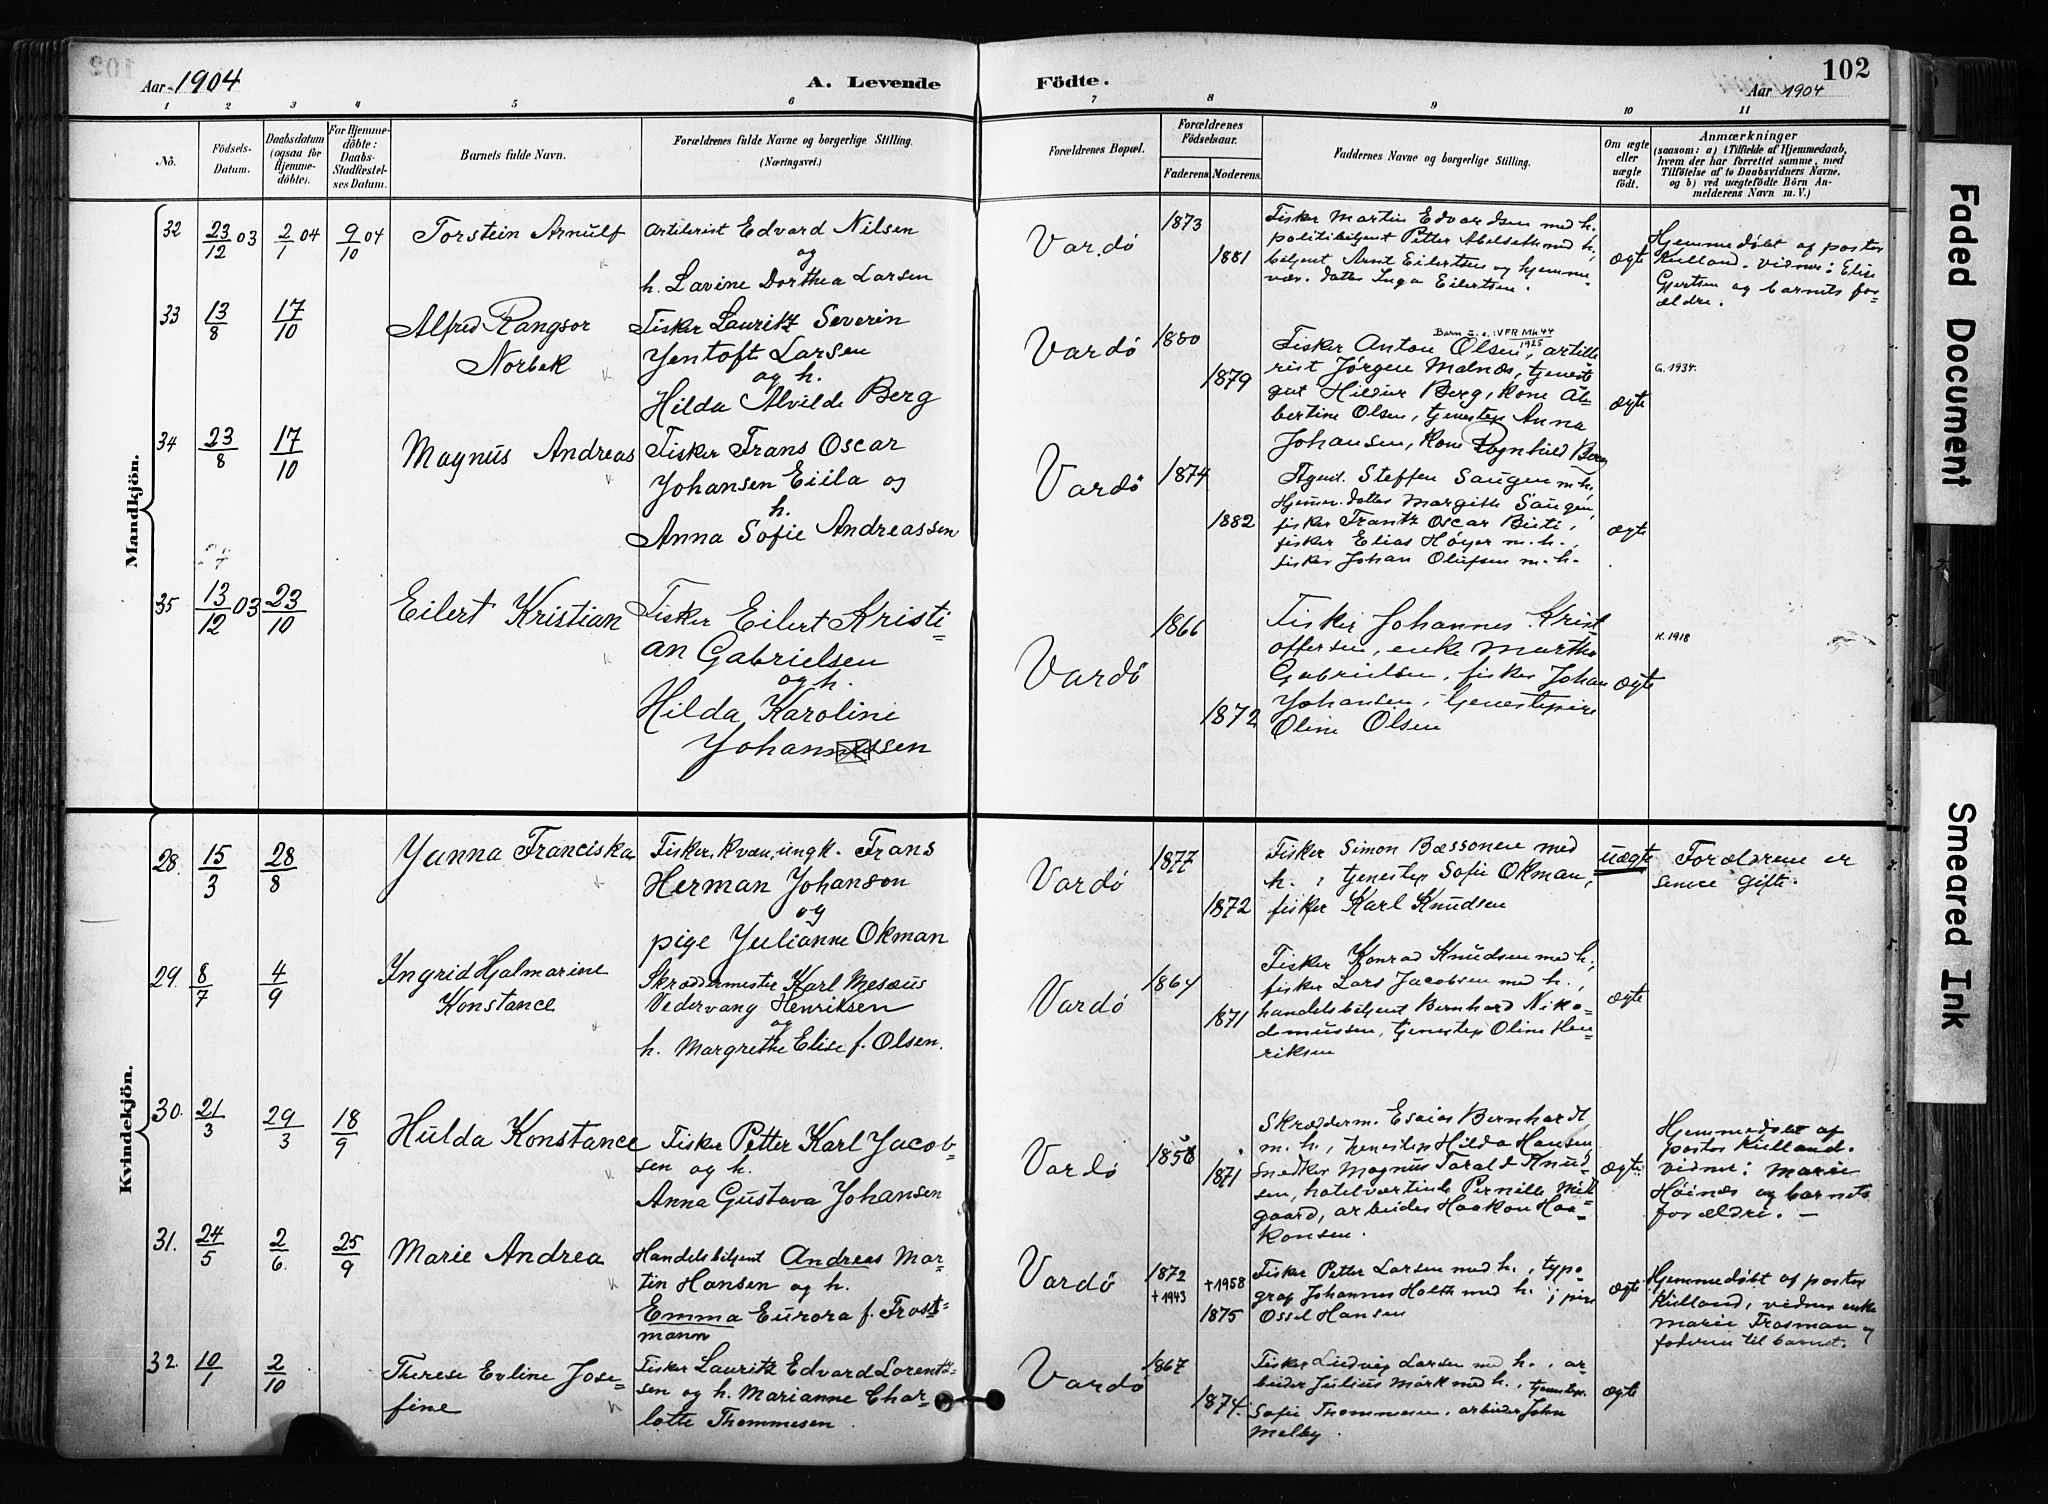 102
Aar 1904
A. Levende
Födte.
Aar 1904
1 2 3 4 5 6 7 8 9 10 11
No.
Födsels-
Datum.
Daabsdatum
(ogsaa for
Hjemme-
döbte).
For Hjemme-
döbte:
Daabs-
Stadfæstel-
ses Datum.
Barnets fulde Navn.
Forældrenes fulde Navne og borgerlige Stilling.
(Næringsvei.)
Forældrenes Bopæl.
Forældrenes
Födselsaar.
Faderens.
Moderens.
Faddernes Navne og borgerlige Stilling.
Om ægte
eller
uægte
födt.
Anmærkninger
(saasom: a) i Tilfælde af Hjemmedaab,
hvem der har forrettet samme, med
Tilföielse af to Daabsvidners Navne.
og b) ved uægtefödte Börn An-
melderens Navn m. V.)
Mandkjön.
32 23/12 03 2/1 04 9/10 04
Torstein Arnulf
Artilerist Edvard Nilsen
og
h. Lavine Dorthea Larsen
Vardö
1873
1881
Fisker Martin Edvardsen med h.,
politibetjent Petter Abelseth med h.,
betjent Arnt Eilertsen og hjemme-
vær. datter Inga Eilertsen.
ægte
Hjemmedøbt af pastor
Kielland. Vidner: Elise
Gjertsen og barnets for-
ældre.
33 13/8 17/10
Alfred Rangsor
Norbek
Fisker Lauritz Severin
Yentoft Larsen
og h.
Hilda Alvilde Berg
Vardö
1880
1879
Barn u. e.: VFR Mk 44
1925
Fisker Anton Olsen, artille
rist Jørgen Malnæs, tjeneste
gut Hildur Berg, kone Al-
bertine Olsen, tjenestep. Anna
Johansen, kone Ragnhild Berg
ægte
G. 1934.
34 23/8 17/10
Magnus Andreas
Fisker Frans Oscar
Johansen Eiila og
h.
Anna Sofie Andreassen
Vardö
1874
1882
Agent. Steffen Saugen m. h.
Hjemv. datter Margith Saugen,
fisker Frantz Oscar Bisti,
fisker Elias Høyer m. h.,
fisker Johan Olufsen m. h.
ægte
35 13/12 03 23/10
Eilert Kristian
Fisker Eilert Kristi-
an Gabrielsen
og h.
Hilda Karoline
Johannessen
Vardö
1866
1872
Fisker Johannes Krist
offersen, enke Martha
Gabrielsen, fisker Johan
Johansen, tjenestepige
Oline Olsen
ægte
K. 1918
Kvindekjön.
28. 15/3 28/8
Yanna Franciska
Fisker, kvæn, ungk. Frans
Herman Johanson
og
pige Julianne Okman
Vardö
1877
1872
Fisker Simon Bæssonen med
h., tjenestep Sofie Okman,
fisker Karl Knudsen
uægte
Forældrene er
senere gifte.
29. 8/7 4/9
Ingrid Hjalmarine
Konstance
Skræddermester Karl Mesæus
Vedervang Henriksen
og
h. Margrethe Elise f. Olsen.
Vardö
1864
1871
Fisker Konrad Knudsen med h.,
fisker Lars Jacobsen med h.,
handelsbetjent Bernhard Niko-
demussen, tjenestep Oline Hen
riksen
ægte
30. 21/3 29/3 18/9
Hulda Konstance
Fisker Petter Karl Jacob-
sen og h.
Anna Gustava Johansen
Vardö
1871
Skrædderm. Esaias Bernhardt
m. h., tjenestep Hilda Hansen,
snedker Magnus Tarald Knud-
sen, hotelværtinde Pernille Mit-
gaard, arbeider Haakon Haa-
konsen.
ægte
Hjemmedøbt af
pastor Kielland.
vidner: Marie
Höinæs og barnets
forældre. -
31. 24/5 2/6. 25/9
Marie Andrea
Handelsbetjent Andreas Mar-
tin Hansen og h.
Emma Eurora f. Frost-
mann
Vardö
1872
+1943
+1958
1875
Fisker Petter Larsen med h., typo-
graf Johannes Holth med h., pige
Ossel Hansen
ægte
Hjemmedøbt af pastor
Kielland, vidner enke
Marie Frosman og
faderen til barnet.
32. 10/1 2/10
Therese Evline Jose-
fine
Fisker Lauritz Edvard Lorentz-
sen og h. Marianne Char-
lotte Thommesen
Vardö
1867
1874.
Fisker Ludvig Larsen med h., ar-
beider Julius Mörk med h., tjenestep.
Sofie Thommesen, arbeider John
Melby.
ægte
Faded Document
Smeared Ink